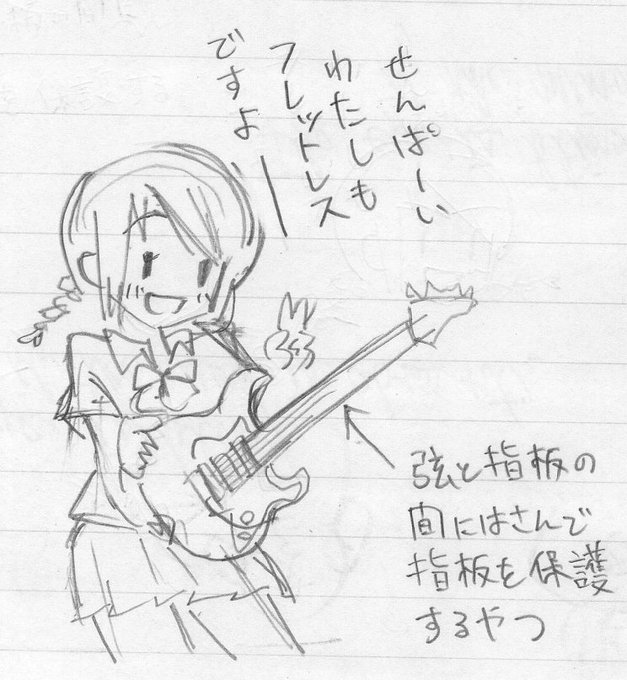 せんぱーい
わたしも
フレットレス
ですよ
弦と指板の
間にはさんで
指板を保護
するやつ